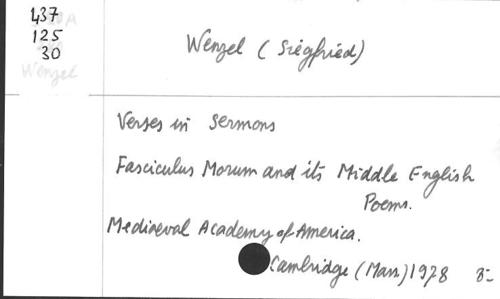 437
125
30
Wenzel
Wenzel (Siegfried)
Verses in Sermons
Fasciculus Morum and its Middle English
Poems.
Mediaeval Academy of America.
Cambridge (Mass.) 1978 8-